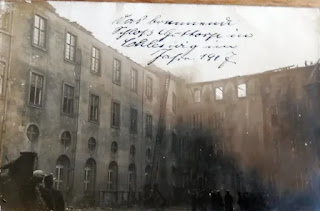 Das brennende
Schloß Gottorp in
Schleswig im
Jahre 1917